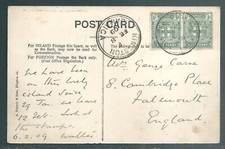 POST CARD
For INLAND Postage this Space, as well as the Back, may now be used for Communication.
For FOREIGN Postage the Back only.
(Post Office Regulation.)
KINGSTON
We have been
on this lovely
island since
29 Jan. we leave
12 Feb. Look at
the stamps
6.2.09 Walter
George Carne
8, Cambridge Place
Falmouth
England